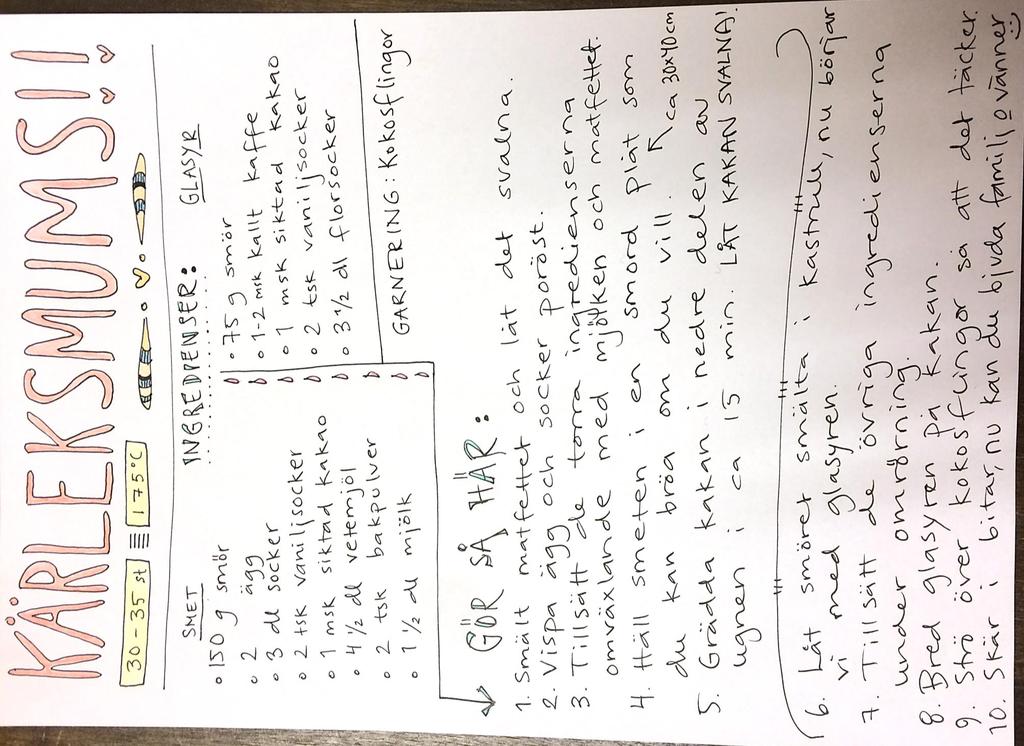 KÄRLEKSMUMS!!!
30-35 st 175°C
INGREDIENSER:
SMET
• 150 g smör
• 2 ägg
• 3 dl socker
• 2 tsk vaniljsocker
• 1 msk siktad kakao
• 4 1/2 dl vetemjöl
• 2 tsk bakpulver
• 1 1/2 dl mjölk
GLASYR
• 75 g smör
• 1-2 msk kallt kaffe
• 1 msk siktad kakao
• 2 tsk vaniljsocker
• 3 1/2 dl florsocker
GARNERING: Kokosflingor
GÖR SÅ HÄR:
1. Smält matfettet och låt det svalna.
2. Vispa ägg och socker poröst.
3. Tillsätt de torra ingredienserna
omväxlande med mjölken och matfettet.
4. Häll smeten i en smord plåt som
du kan bröa om du vill. ca 30x40cm
5. Grädda kakan i nedre delen av
ugnen i ca 15 min. LÅT KAKAN SVALNA!
6. Låt smöret smälta i kastrull, nu börjar
vi med glasyren.
7. Tillsätt de övriga ingredienserna
under omrörning.
8. Bred glasyren på kakan.
9. Strö över kokosflingor så att det täcker.
10. Skär i bitar, nu kan du bjuda familj o vänner